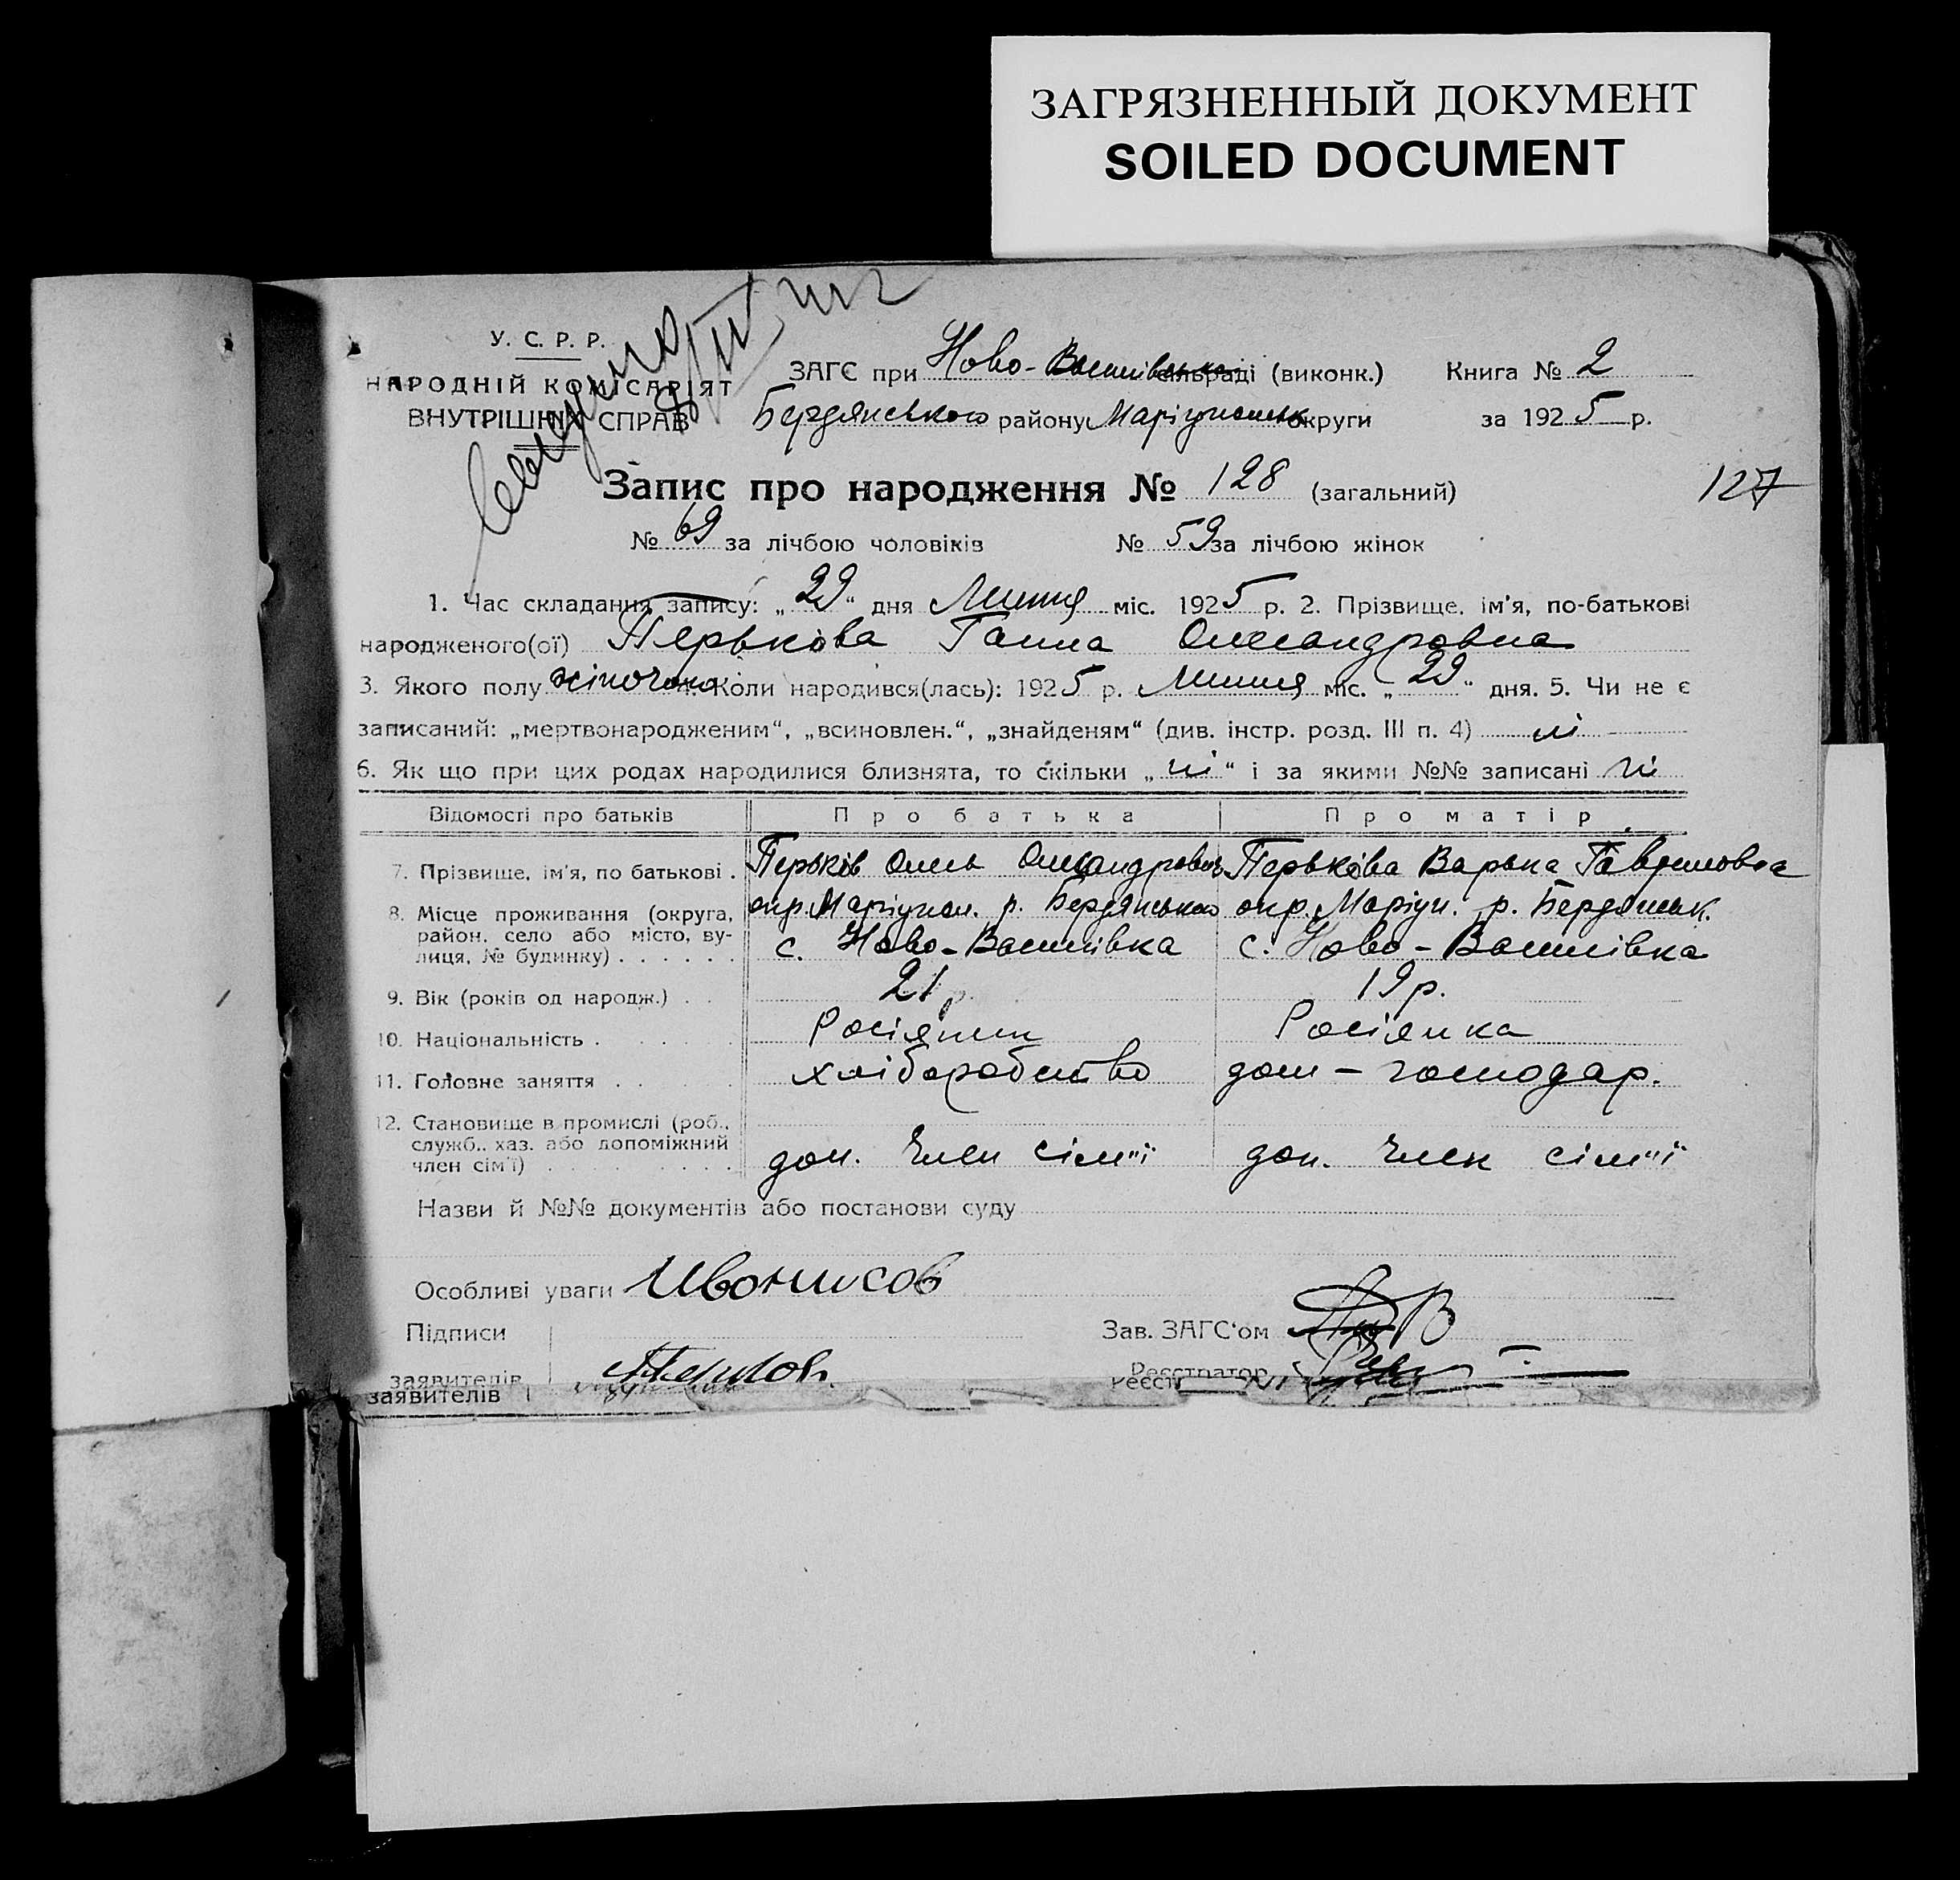 ЗАГРЯЗНЕННЫЙ ДОКУМЕНТ
SOILED DOCUMENT
У. С. Р. Р.
НАРОДНІЙ КОМІСАРІЯТ
ВНУТРІШНІХ СПРАВ
ЗАГС при Ново-Василівській сільраді (виконк.) Книга № 2
Бердянського району Маріупольськ округи за 1925 р.
Запис про народження № 128 (загальний)
127
№ 69 за лічбою чоловіків № 59 за лічбою жінок
1. Час складання запису: „29“ дня Липня міс. 1925 р. 2. Прізвище, ім'я, по-батькові
народженого(ої) Перькова Ганна Олександровна
3. Якого полу жіночого Коли народився(лась): 1925 р. Липня міс. „29“ дня. 5. Чи не є
записаний: „мертвонародженим“, „всиновлен.“, „знайденям“ (див. інстр. розд. III п. 4) ні
6. Як що при цих родах народилися близнята, то скільки „ні“ і за якими №№ записані ні
Відомості про батьків Про батька Про матір
7. Прізвище, ім'я, по батькові . Перьків Олесь Олександрович Перькова Варька Гавриловна
8. Місце проживання (округа, окр. Маріупол. р. Бердянського окр. Маріуп. р. Бердянськ.
район, село або місто, ву-
лиця, № будинку) . . . . . . с. Ново-Василівка с. Ново-Василівка
9. Вік (років од народж.) . . 21 р. 19 р.
10. Національність . . . . . Росіянин Росіянка
11. Головне заняття . . . хліборобство дом-господар.
12. Становище в промислі (роб.,
служб., хаз. або допоміжний
член сім'ї) . . . . . . . . доп. член сім"ї доп. член сім"ї
Назви й №№ документів або постанови суду
Особливі уваги
Підписи Зав. ЗАГС'ом
заявителів Реєстратор
заявителів